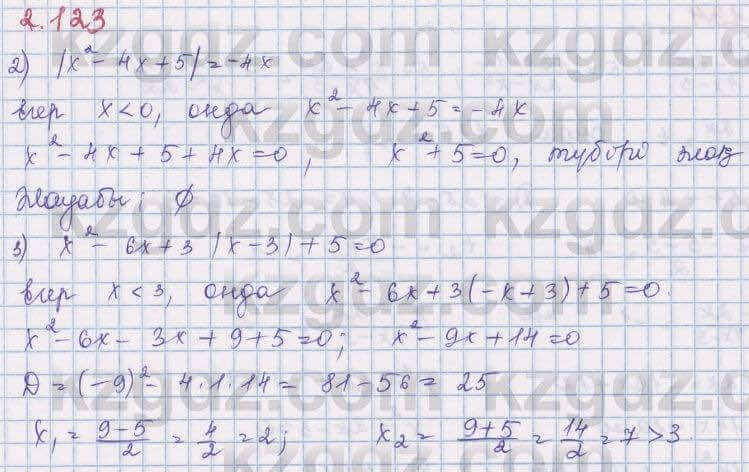 2.123
2) |x² - 4x + 5| = -4x
егер x < 0, онда x² - 4x + 5 = -4x
x² - 4x + 5 + 4x = 0, x² + 5 = 0, түбірі жоқ
Жауабы: ∅
3) x² - 6x + 3|x - 3| + 5 = 0
егер x < 3, онда x² - 6x + 3(-x + 3) + 5 = 0.
x² - 6x - 3x + 9 + 5 = 0; x² - 9x + 14 = 0
D = (-9)² - 4·1·14 = 81 - 56 = 25
x₁ = (9-5)/2 = 4/2 = 2; x₂ = (9+5)/2 = 14/2 = 7 > 3.
kzgdz.com